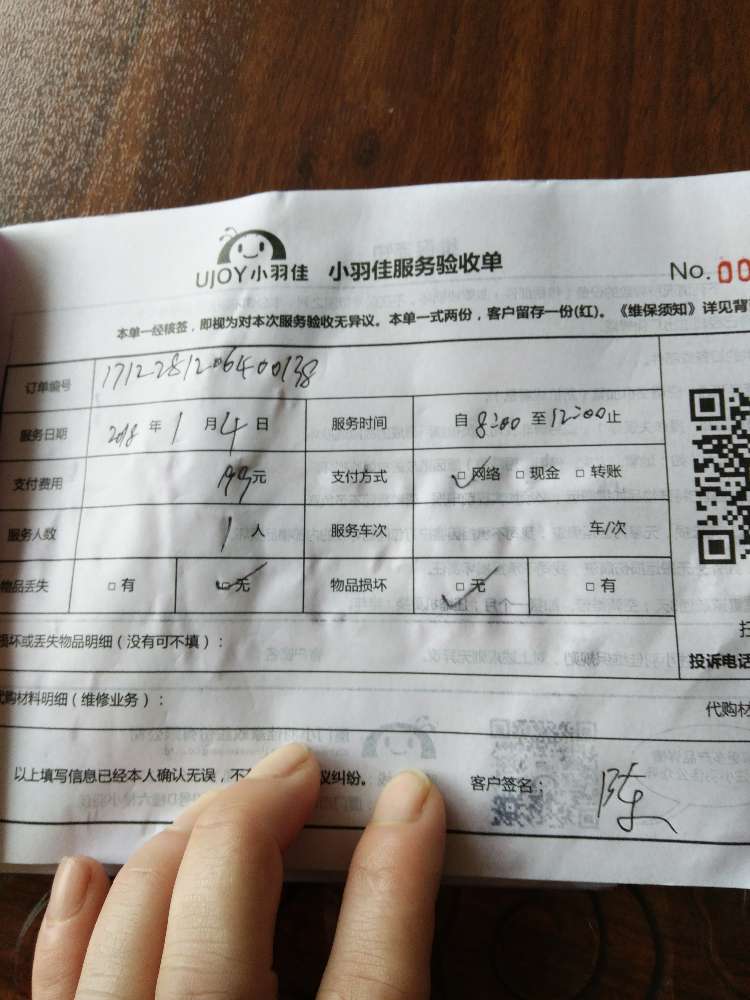 UJOY小羽佳 小羽佳服务验收单 No.00
本单一经核签，即视为对本次服务验收无异议。本单一式两份，客户留存一份(红)。《维保须知》详见背
订单编号 1712281206400138
服务日期 2018 年 1 月 4 日 服务时间 自 8:00 至 12:00 止
支付费用 199元 支付方式 □网络 □现金 □转账
服务人数 1 人 服务车次 车/次
物品丢失 □有 □无 物品损坏 □无 □有
损坏或丢失物品明细（没有可不填）：
投诉电话
代购材料明细（维修业务）： 代购材
以上填写信息已经本人确认无误，不 议纠纷。 客户签名： 陈